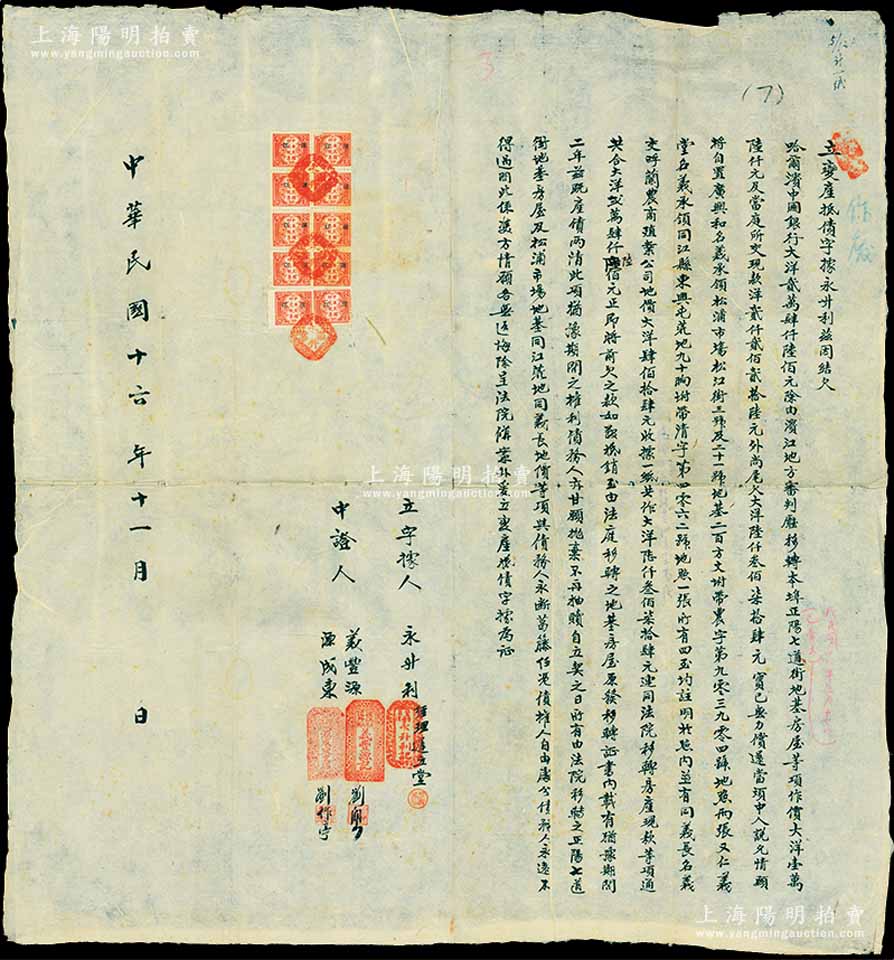 立變產抵債字據永升利茲因結欠
哈爾濱中國銀行大洋貳萬肆仟陸佰元除由濱江地方審判廳移轉本埠正陽七道街地基房屋等項作價大洋壹萬
陸仟元及當庭所交現款洋貳仟貳佰貳拾陸元外尚尾欠大洋陸仟叁佰柒拾肆元實已無力償還當項中人說允情願
將自置廣興和名義承領松浦市場松江街三號及二十一號地基二百方丈附帶農字第九零三九零四號地照兩張又仁義
堂名義承領同江縣東興屯荒地九十晌附帶清字第四零六二號地照一張所有四至均註明於照內並有同義長名義
交呼蘭農商殖業公司地價大洋肆佰拾肆元收據一紙共作大洋陸仟叁佰柒拾肆元連同法院移轉房產現款等項通
共合大洋貳萬肆仟陸佰元正即將前欠之款如數抵銷至由法庭移轉之地基房屋原發移轉証書內載有猶豫期間
二年茲既產債兩清此項猶豫期間之權利債務人亦甘願拋棄不再抽贖自立契之日所有由法院移轉之正陽七道
街地基房屋及松浦市場地基同江荒地同義長地價等項與債務人永斷葛藤任憑債權人自由處分債務人永遠不
得過問此係雙方情願各無返悔除呈法院備案外並立變產抵債字據為証
立字據人 永升利 經理 連立堂
中證人 義豐源 劉
源成東 劉作宇
中華民國十六年十一月 日
(7)
3
作廢
上海陽明拍賣
www.yangmingauction.com
上海陽明拍賣
www.yangmingauction.com
上海陽明拍賣
www.yangmingauction.com